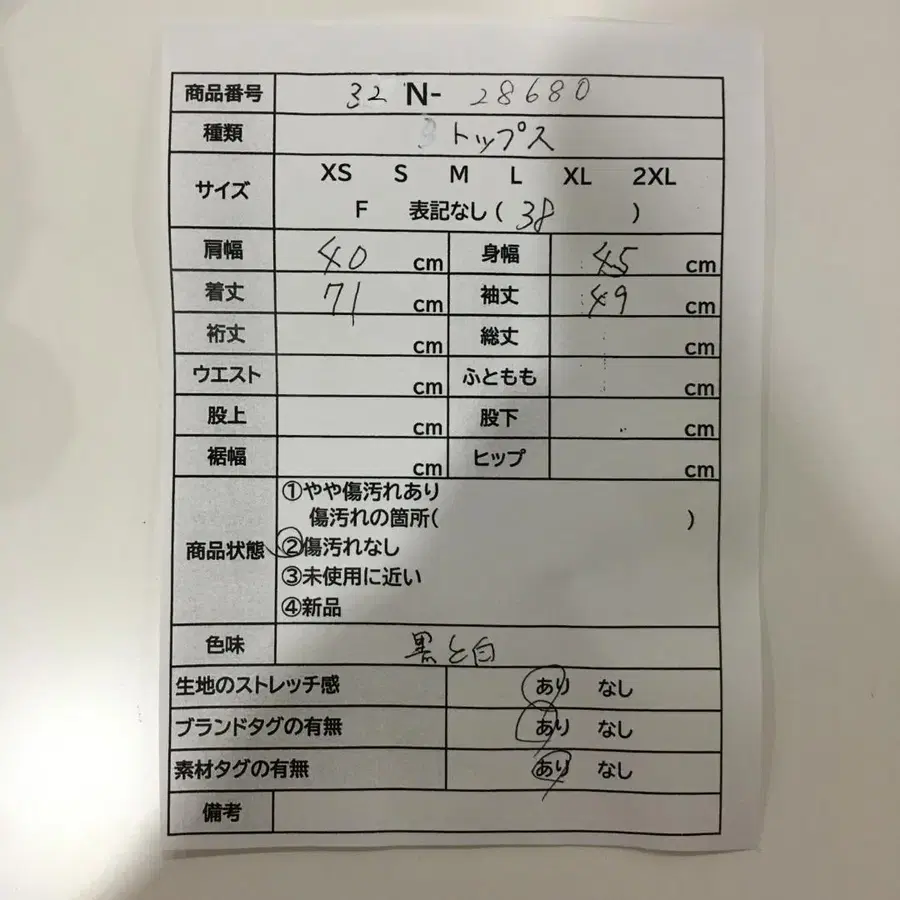 商品番号 32 N- 28680
種類 トップス
サイズ XS S M L XL 2XL
F 表記なし ( 38 )
肩幅 40 cm 身幅 45 cm
着丈 71 cm 袖丈 49 cm
裄丈 cm 総丈 cm
ウエスト cm ふともも cm
股上 cm 股下 cm
裾幅 cm ヒップ cm
商品状態 ①やや傷汚れあり
傷汚れの箇所( )
②傷汚れなし
③未使用に近い
④新品
色味 黒と白
生地のストレッチ感 あり なし
ブランドタグの有無 あり なし
素材タグの有無 あり なし
備考